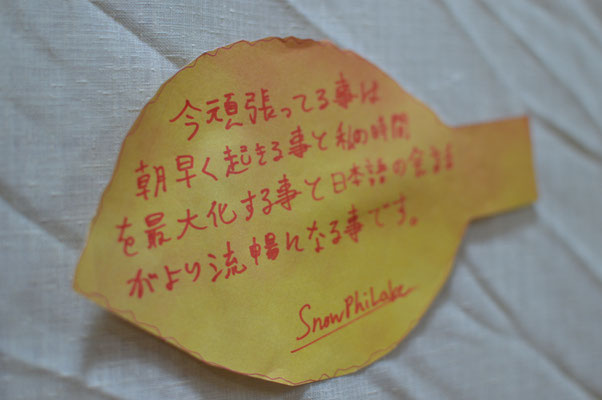 今頑張ってる事は
朝早く起きる事と私の時間
を最大化する事と日本語の会話
がより流暢になる事です。
SnowPhiLake